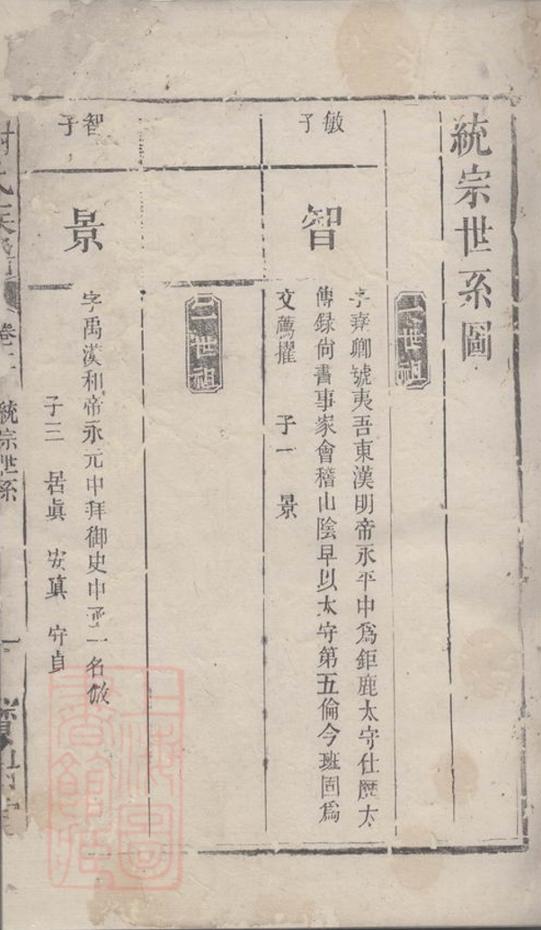 統宗世系圖
一世祖
敏子
智
字堯卿號夷吾東漢明帝永平中為鉅鹿太守仕歷太
傅録尚書事家會稽山陰早以太守第五倫令班固為
文薦擢 子一 景
二世祖
智子
景
字禹漢和帝永元中拜御史中丞一名俶
子三 居真 安真 守貞
氏族譜 卷二 統宗世系 一